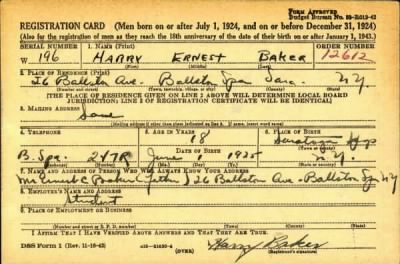 Form Approved
Budget Bureau No.
REGISTRATION CARD (Men born on or after July 1, 1924, and on or before December 31, 1924)
(Also for the registration of men as they reach the 18th anniversary of the date of their birth on or after January 1, 1943.)
SERIAL NUMBER
1. NAME (Print)
ORDER NUMBER
W 196
HARRY ERNEST BAKER
12612
(First) (Middle) (Last)
2. PLACE OF RESIDENCE (Print)
26 Ballston Ave. Ballston Spa Sara. N.Y.
(Number and street) (Town, township, village, or city) (County) (State)
[THE PLACE OF RESIDENCE GIVEN ON LINE 2 ABOVE WILL DETERMINE LOCAL BOARD
JURISDICTION; LINE 2 OF REGISTRATION CERTIFICATE WILL BE IDENTICAL]
3. MAILING ADDRESS
Same
4. TELEPHONE
5. AGE IN YEARS
6. PLACE OF BIRTH
18
Saratoga Spgs
DATE OF BIRTH
(Town or county)
B. Spa. 247R
June 1 1925
N.Y.
(Mo.) (Day) (Yr.)
(State or country)
7. NAME AND ADDRESS OF PERSON WHO WILL ALWAYS KNOW YOUR ADDRESS
Mr Ernest C Baker (Father) 26 Ballston Ave - Ballston Spa NY
8. EMPLOYER'S NAME AND ADDRESS
Student
9. PLACE OF EMPLOYMENT OR BUSINESS
(Number and street or R. F. D. number) (Town) (County) (State)
I AFFIRM THAT I HAVE VERIFIED ABOVE ANSWERS AND THAT THEY ARE TRUE.
DSS Form 1 (Rev. 11-16-42)
(OVER)
Harry Baker
(Registrant's signature)